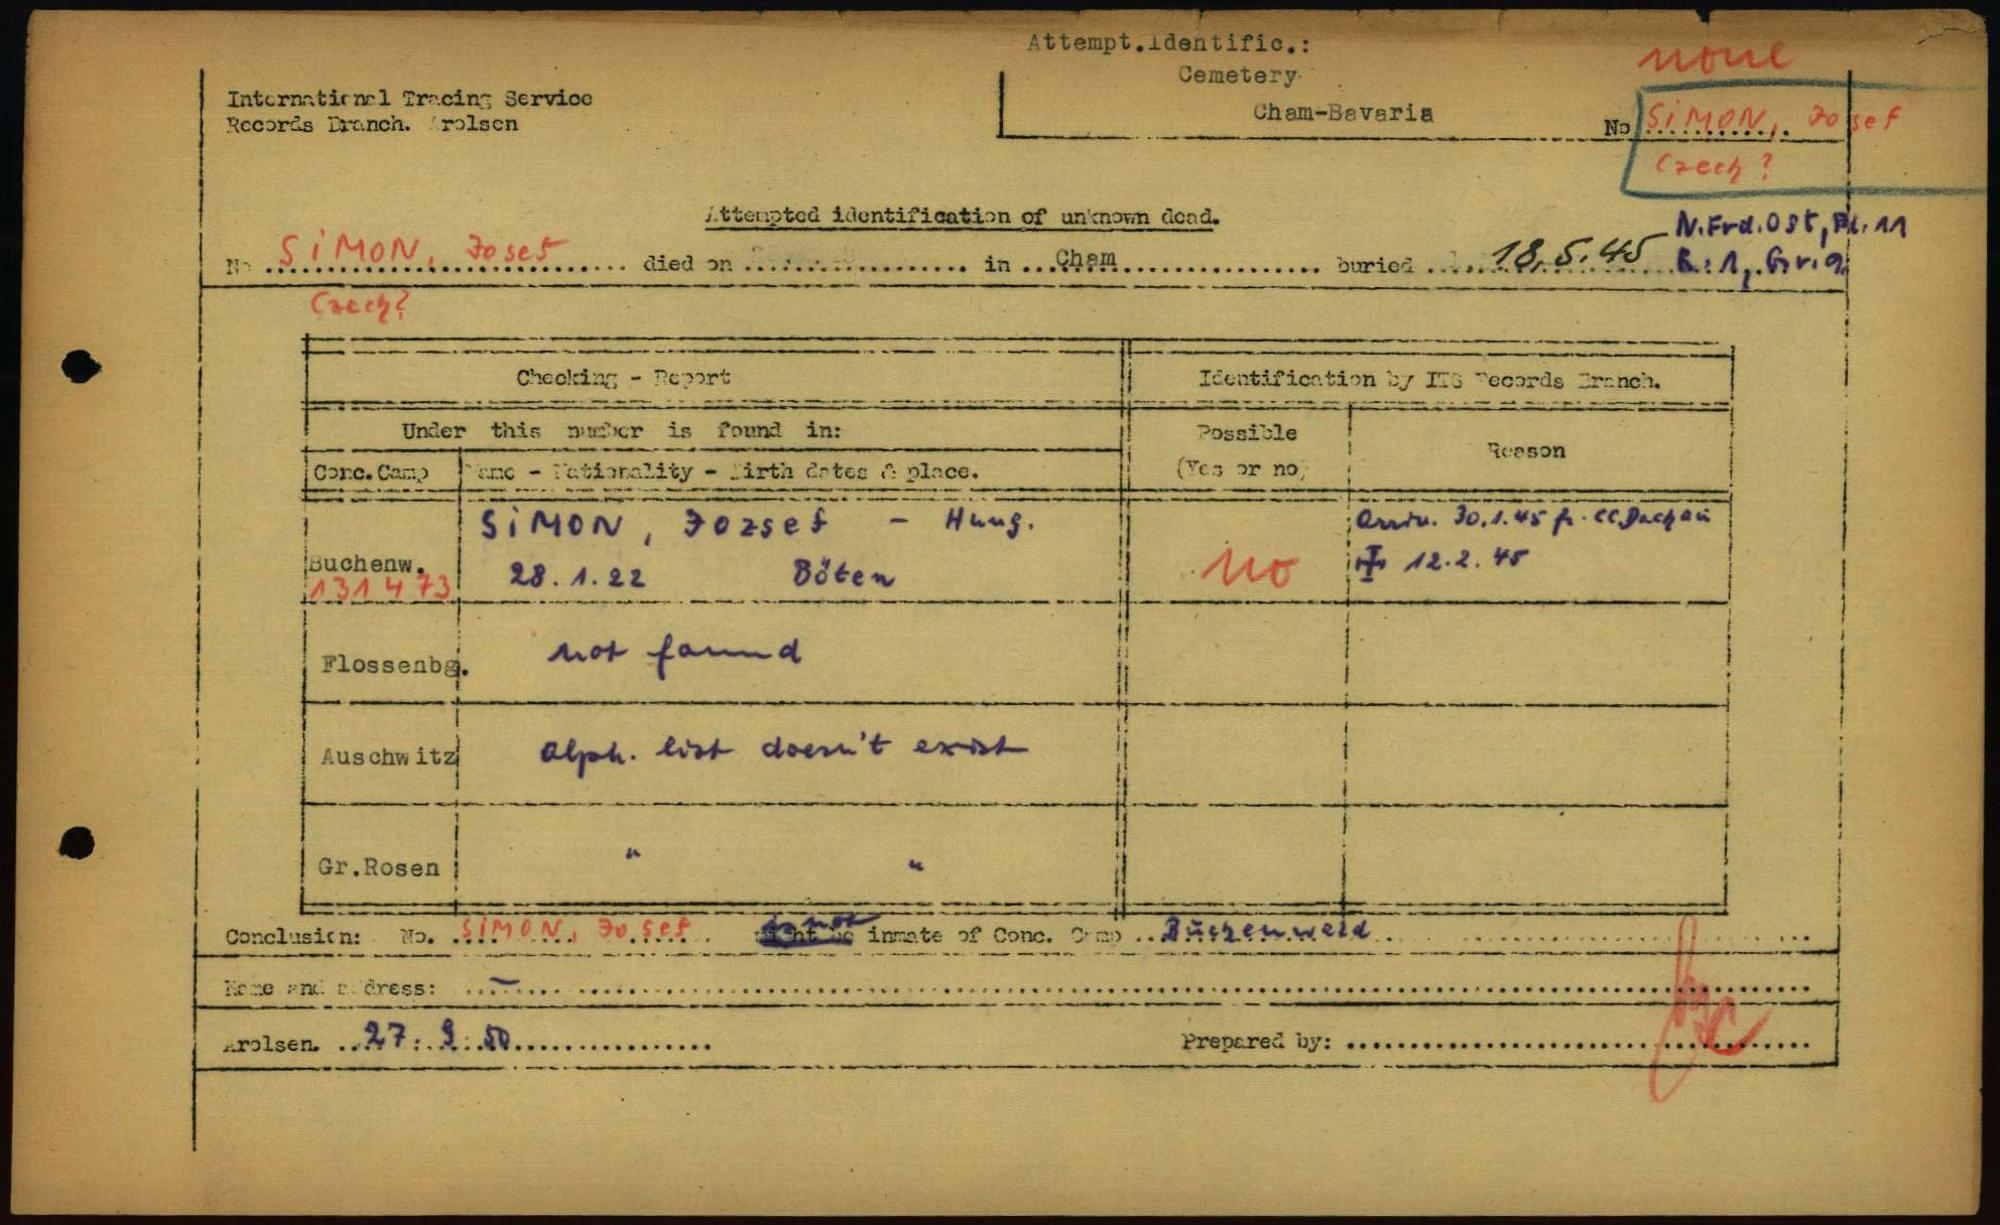 Attempt.Identific.:
none
Cemetery
International Tracing Service
Cham-Bavaria
No SIMON, Josef
Records Branch. Arolsen
Czech?
Attempted identification of unknown dead.
N.Frd.Ost, Pl. 11
No SIMON, Josef died on .................... in ...Cham.................. buried ... 18.5.45 R. 1, Gr. 9.
Czech?
Checking - Report
Identification by ITS Records Branch.
Under this number is found in:
Possible
(Yes or no)
Reason
Conc.Camp
Name - Nationality - Birth dates & place.
SIMON, Jozsef - Hung.
Arriv. 30.1.45 fr. CC Dachau
Buchenw.
131473
28.1.22 Böten
no
12.2.45
Flossenbg. not found
Auschwitz alph. list doesn't exist
Gr.Rosen " "
Conclusion: No. SIMON, Josef not inmate of Conc. Camp ..Buchenwald..
Name and address: -
Arolsen. 27.9.50
Prepared by: